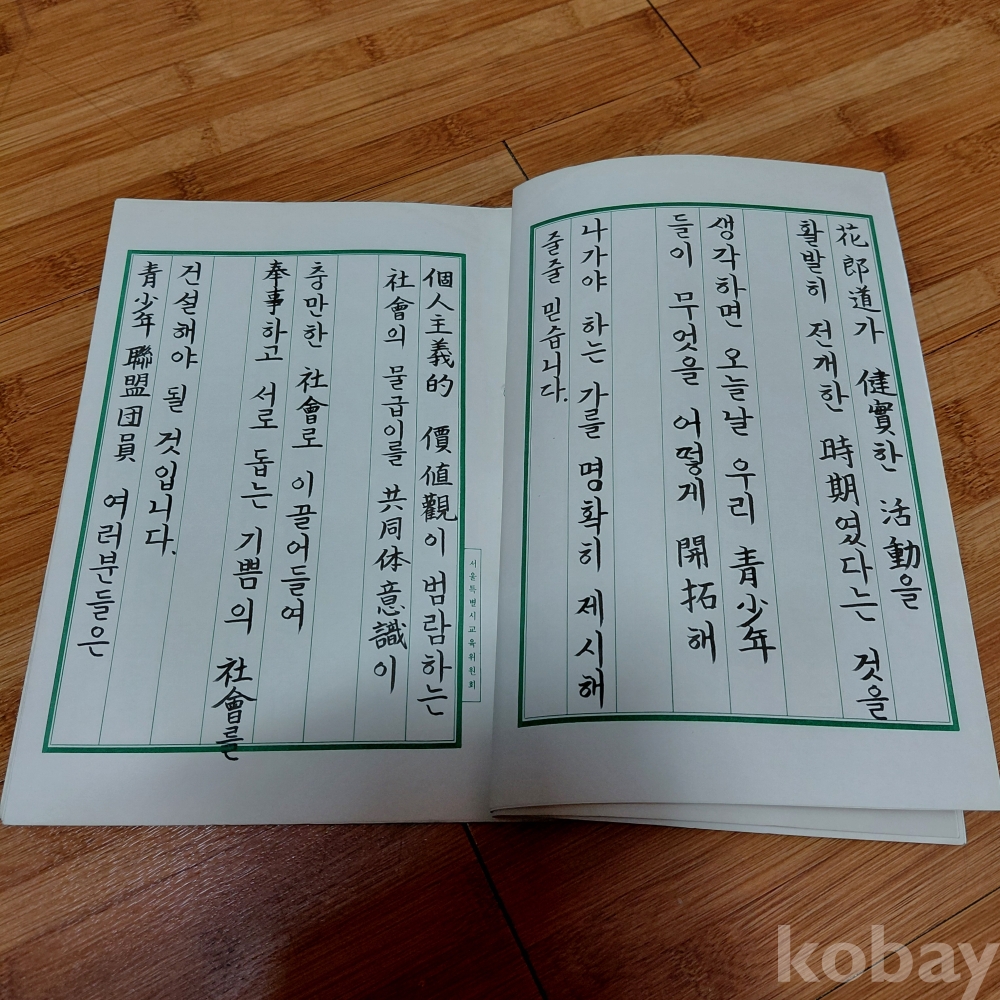 花郎道가 健實한 活動을
활발히 전개한 時期였다는 것을
생각하면 오늘날 우리 青少年
들이 무엇을 어떻게 開拓해
나가야 하는 가를 명확히 제시해
줄줄 믿습니다.
個人主義的 價値觀이 범람하는
社會의 물급이를 共同体意識이
충만한 社會로 이끌어들여
奉事하고 서로 돕는 기쁨의 社會를
건설해야 될 것입니다.
青少年 聯盟団員 여러분들은
서울특별시교육위원회
kobay